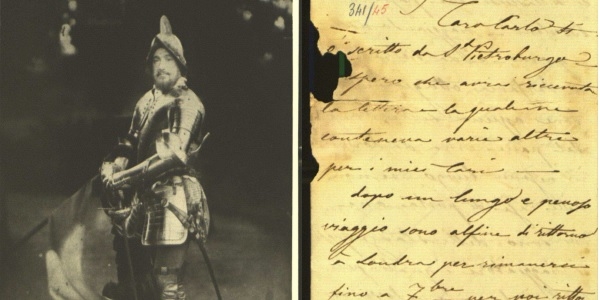 341/45
Caro Carlo ti
è scritto da St Pietroburgo
spero che avrai ricevuta
la lettera la quale ne
conteneva varie altre
per i miei Cari —
dopo un lungo e penoso
viaggio sono alfine di ritorno
à Londra per rimanervi
fino a 7bre per poi